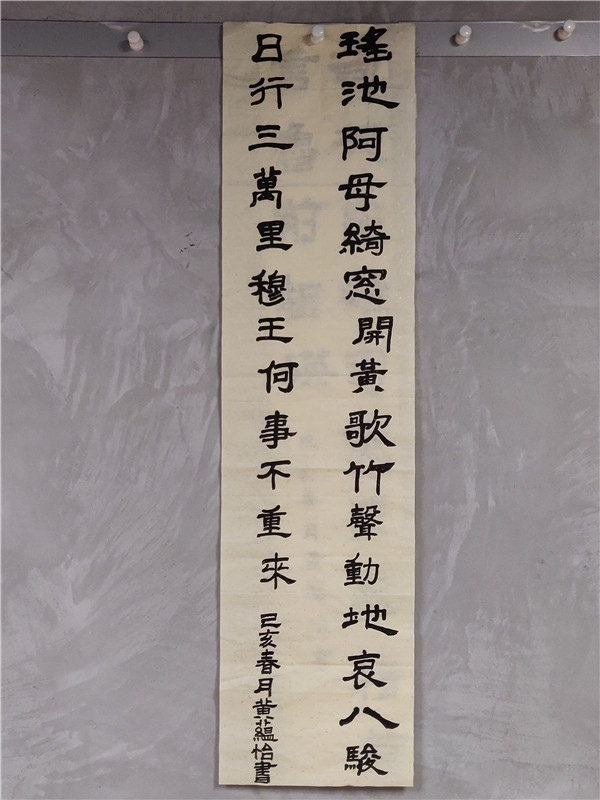 瑤池阿母綺窓開黃歌竹聲動地哀八駿
日行三萬里穆王何事不重來
己亥春月黄蘊怡書